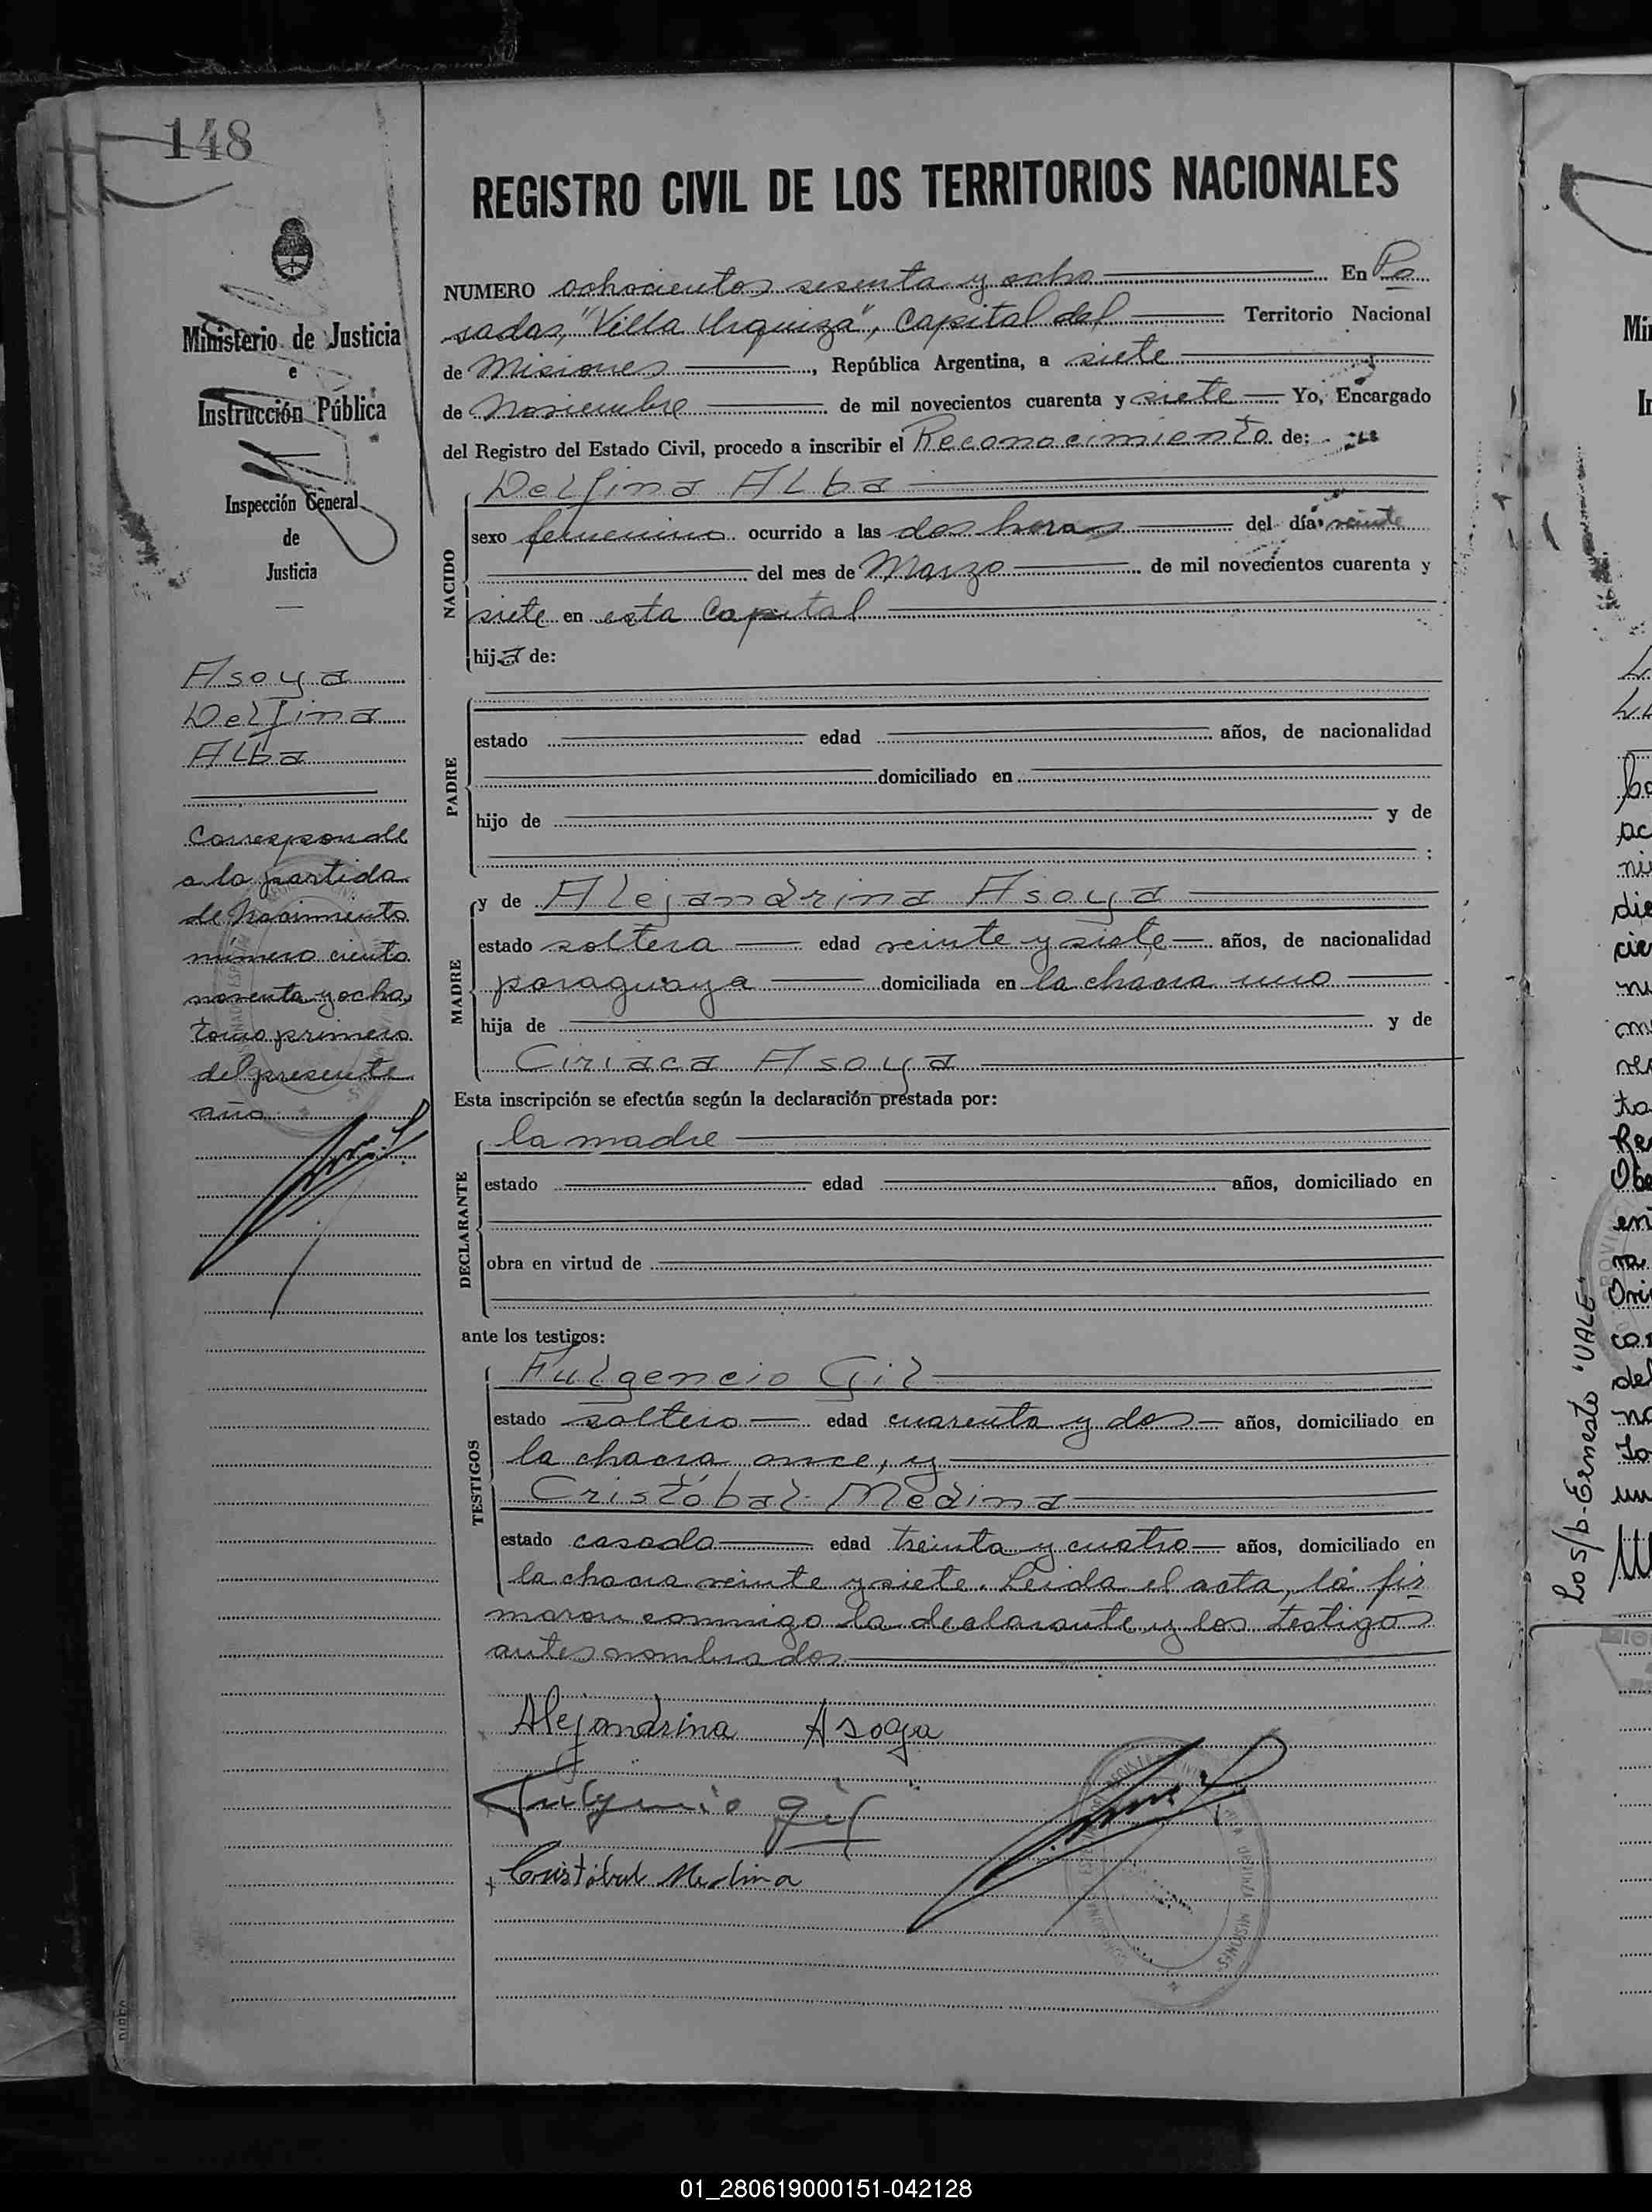 148
Ministerio de Justicia
e
Instrucción Pública
Inspección General
de
Justicia
Asoya
Delfina
Alba
Corresponde
a la partida
de Nacimiento
número ciento
noventa y ocho,
tomo primero
del presente
año
REGISTRO CIVIL DE LOS TERRITORIOS NACIONALES
NUMERO ochocientos sesenta y ocho En Po
sadas, "Villa Urquiza", Capital del Territorio Nacional
de Misiones, República Argentina, a siete
de Noviembre de mil novecientos cuarenta y siete Yo, Encargado
del Registro del Estado Civil, procedo a inscribir el Reconocimiento de:
NACIDO
Delfina Alba
sexo femenino ocurrido a las dos horas del día veinte
del mes de Marzo de mil novecientos cuarenta y
siete en esta Capital
hija de:
PADRE
estado edad años, de nacionalidad
domiciliado en
hijo de y de
;
MADRE
y de Alejandrina Asoya
estado soltera edad veinte y siete años, de nacionalidad
paraguaya domiciliada en la chacra uno
hija de y de
Ciriaca Asoya
Esta inscripción se efectúa según la declaración prestada por:
DECLARANTE
la madre
estado edad años, domiciliado en
obra en virtud de
ante los testigos:
TESTIGOS
Fulgencio Gil
estado soltero edad cuarenta y dos años, domiciliado en
la chacra once, y
Cristóbal Medina
estado casado edad treinta y cuatro años, domiciliado en
la chacra veinte y siete. Leida el acta, la fir
maron conmigo la declarante y los testigos
antes nombrados
Alejandrina Asoya
Fulgencio Gil
Cristóbal Medina
Los/b-Ernesto "VALE"
01_280619000151-042128